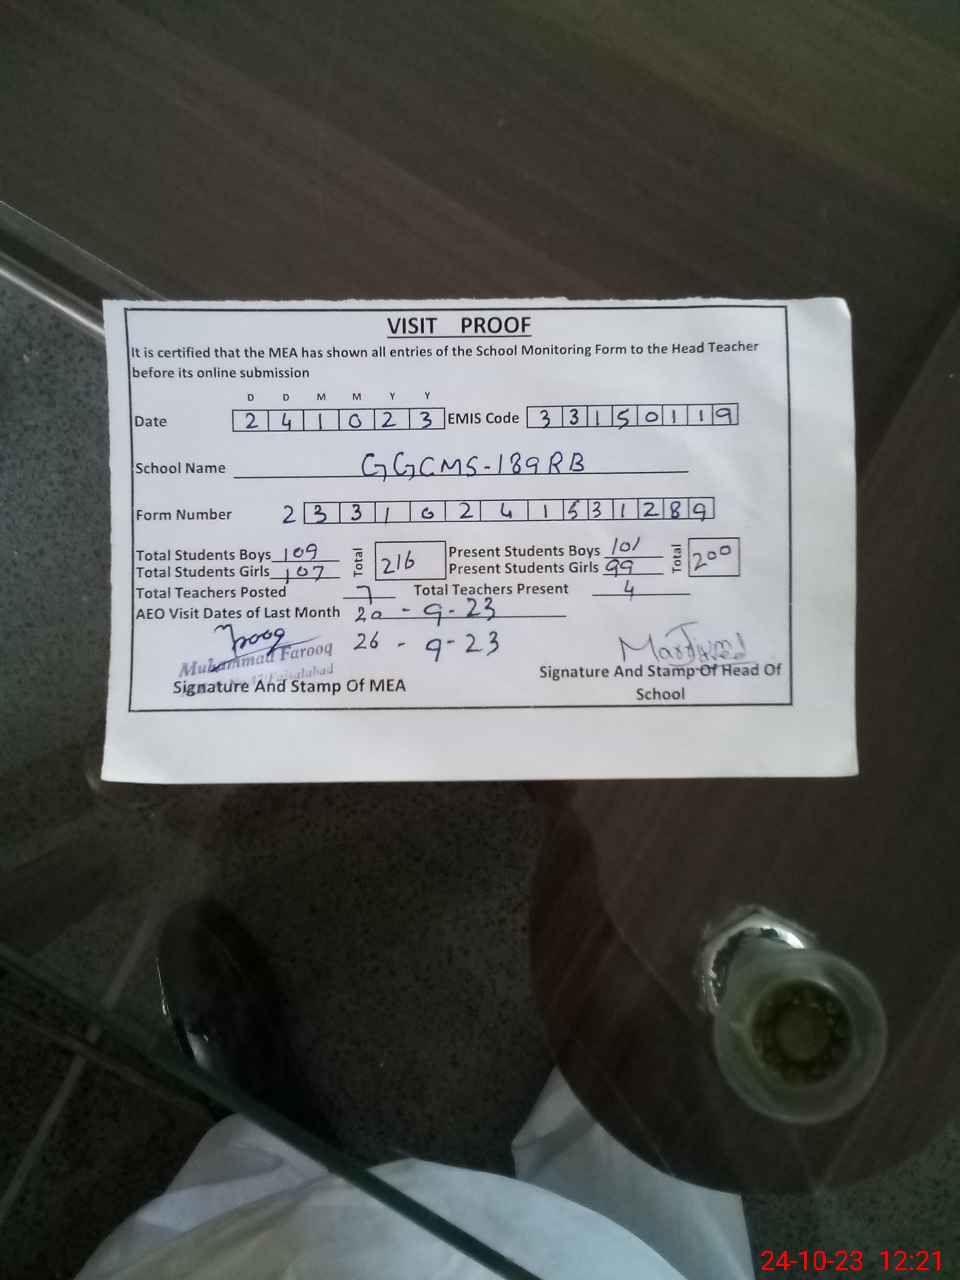 VISIT PROOF
It is certified that the MEA has shown all entries of the School Monitoring Form to the Head Teacher
before its online submission
D D M M Y Y
Date 2 4 1 0 2 3 EMIS Code 3 3 1 5 0 1 1 9
School Name GGCMS-189RB
Form Number 2 3 3 1 0 2 4 1 5 3 1 2 8 9
Total Students Boys 109 Total 216 Present Students Boys 101 Total 200
Total Students Girls 107 Present Students Girls 99
Total Teachers Posted 7 Total Teachers Present 4
AEO Visit Dates of Last Month 20-9-23
26-9-23
Muhammad Farooq
Faisalabad
Signature And Stamp Of MEA
Signature And Stamp Of Head Of
School
24-10-23 12:21